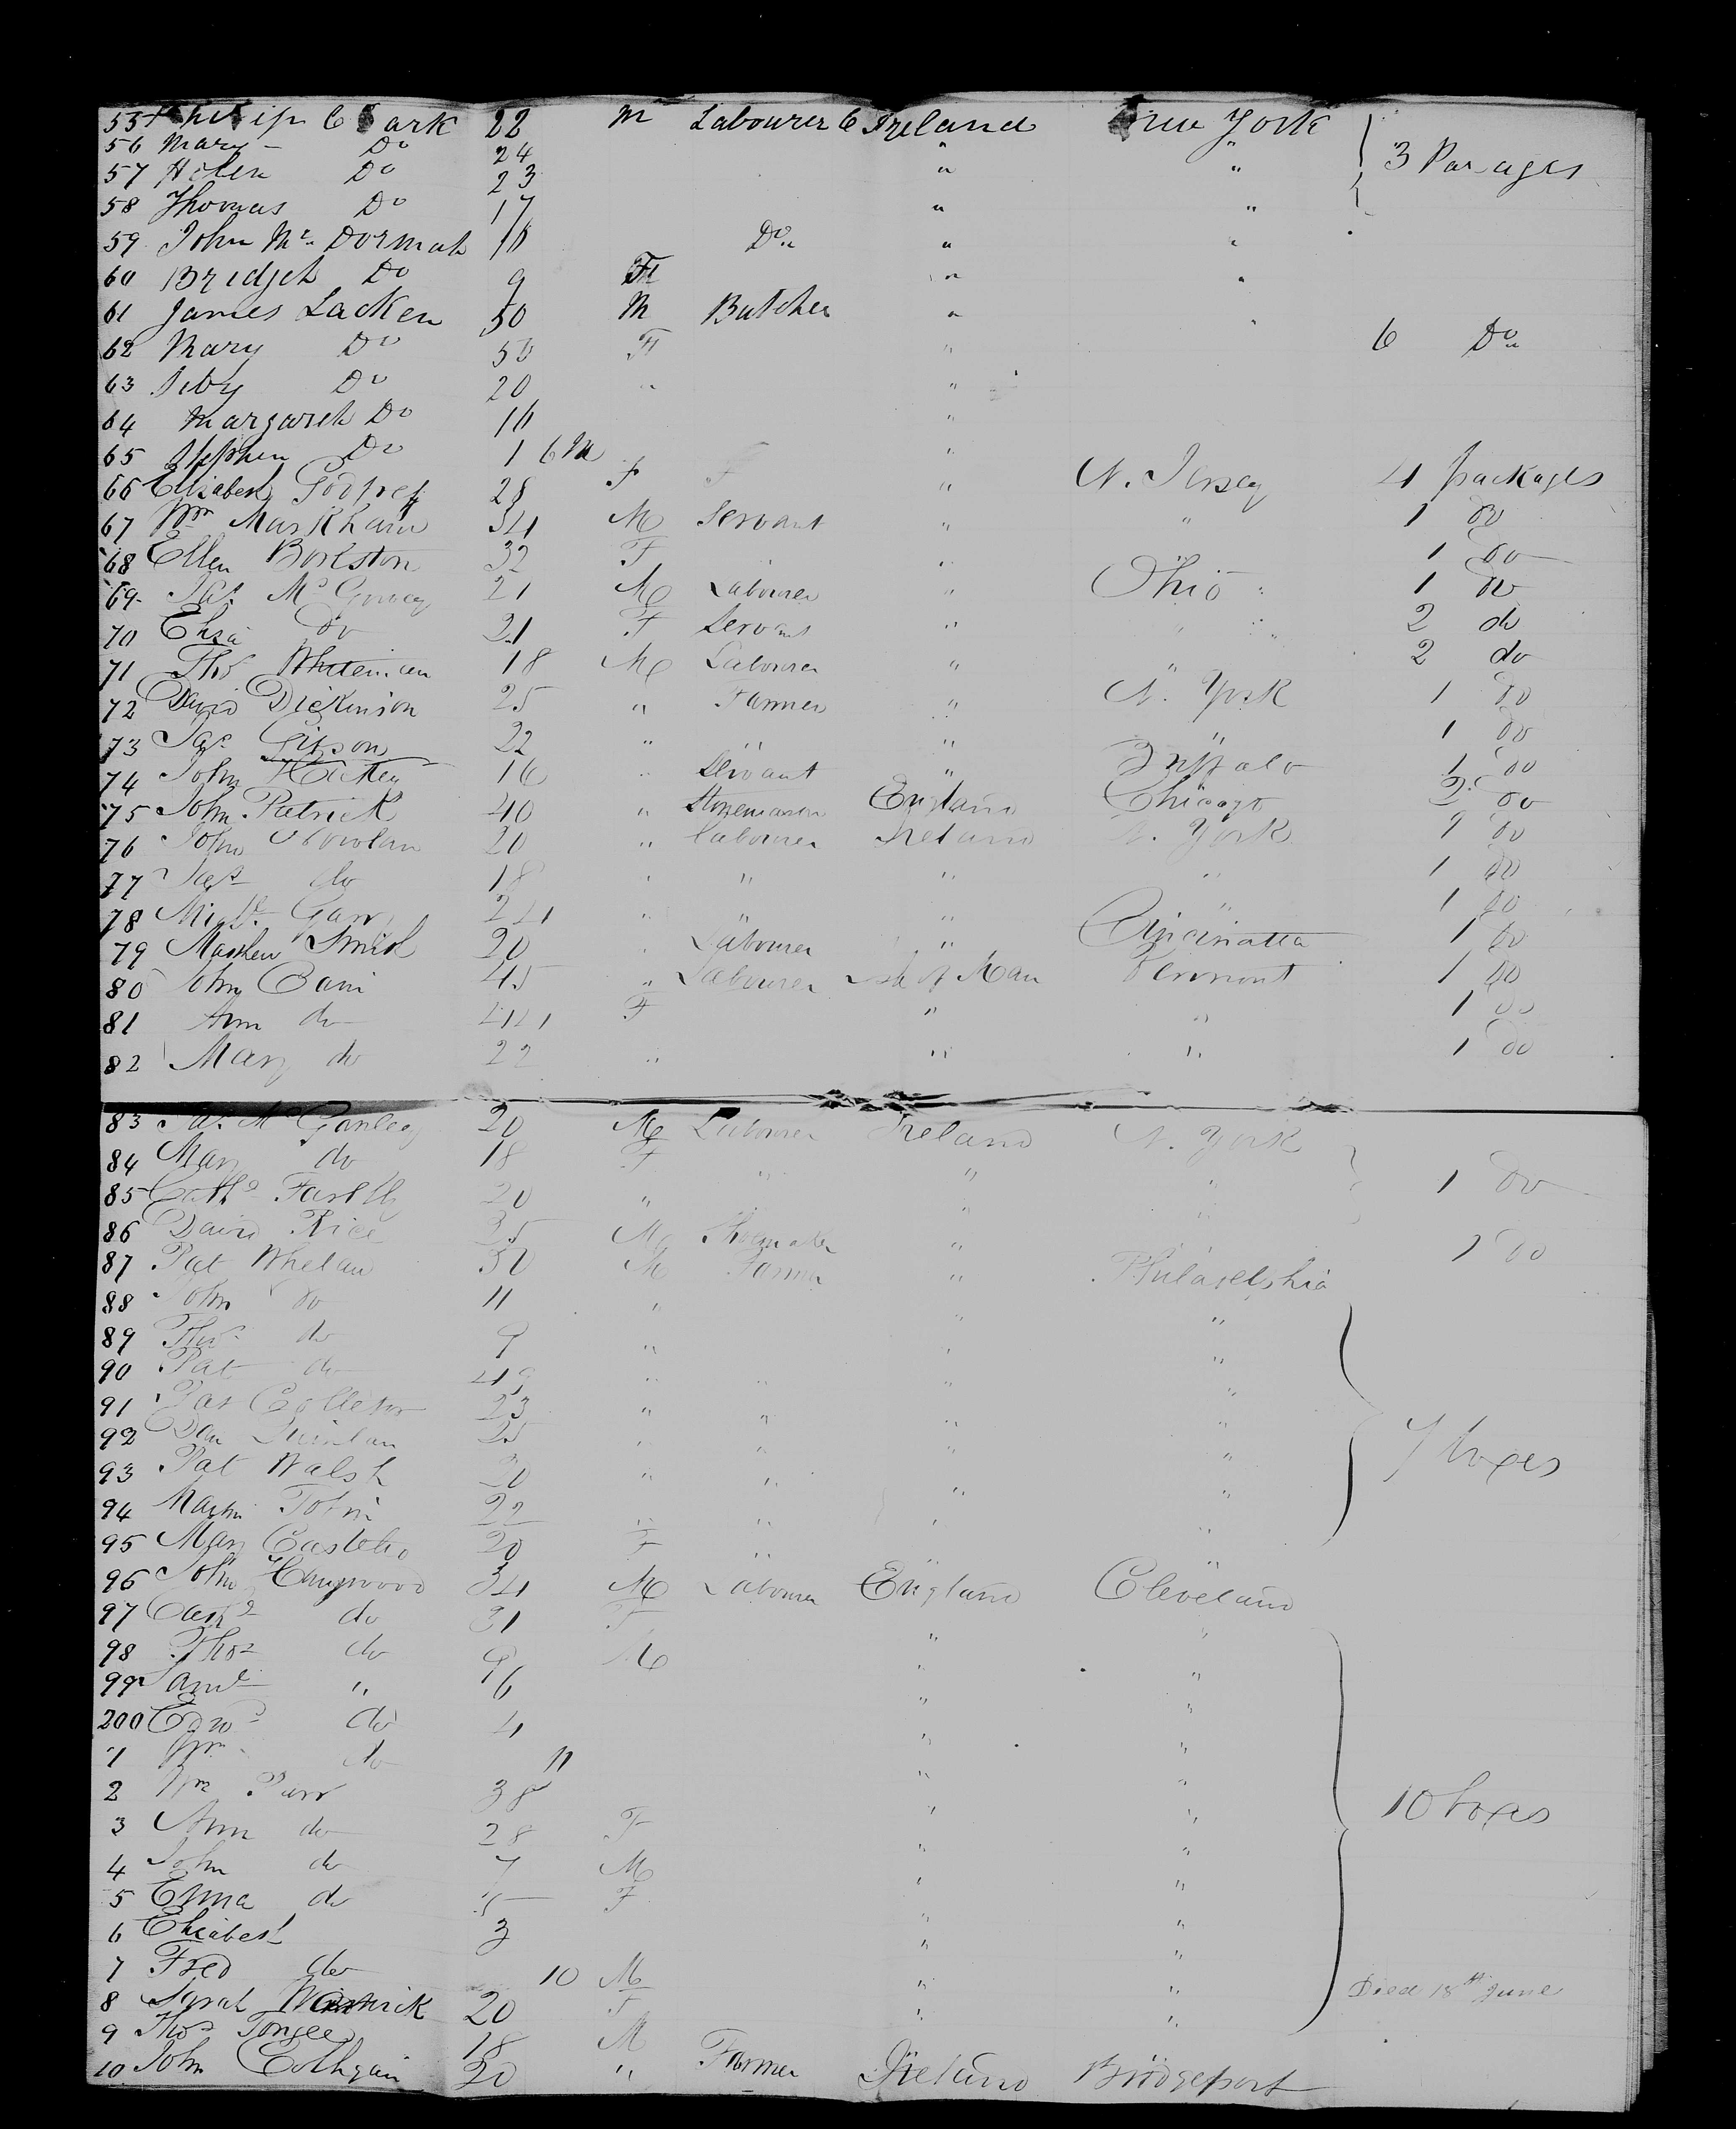 55 Philip Clark 22 M Labourer Ireland New York
56 Mary Do 24 " " 3 Pacages
57 Helen Do 23 " "
58 Thomas Do 17 " "
59 John Mc Dormah Do " "
60 Bridget Do 9 F " "
61 James Lacken 50 M Butcher "
62 Mary Do 50 F " 6 Do
63 Do 20 " "
64 Margareth Do "
65 Do 1 6 M "
66 Elisabeth Godfrey 28 F " N. Jersey 4 packages
67 Wm Markham 34 M Servant " " 1 do
68 Ellen 32 F " 1 do
69 21 M Labourer " Ohio 1 do
70 Eliza do 21 F Servant " " 2 do
71 Thos Whiteman 18 M Labourer " " 2 do
72 David Dickinson 25 " Farmer " N. York 1 do
73 Jas Gibson 22 " " " " 1 do
74 John Hickey 16 " Servant " Buffalo 1 do
75 John Patrick 40 " Stonemason England Chicago 2 do
76 John Nowlan 20 " Labourer Ireland N. York 1 do
77 do 18 " " " " 1 do
78 24 " " " 1 do
79 Mathew Smith 20 " Labourer " Cincinatta 1 do
80 John 45 " Labourer Isl of Man Vermont 1 do
81 Ann do 44 F " " 1 do
82 Mary do 22 " " " 1 do
83 20 M Labourer Ireland N. York
84 Mary do 18 F " " " 1 do
85 20 " " "
86 David Rice 35 M Shoemaker " 1 do
87 Pat Whelan 30 M Farmer " Philadelphia
88 John do 11 " " "
89 Thos do 9 " " "
90 Pat do " " " "
91 23 " " " "
92 Dan Quinlan 25 " " " " 7 boxes
93 Pat Walsh 20 " " " "
94 Martin Tobin 22 " " " "
95 Mary Costelo 20 F " "
96 John Haywood 34 M Labourer England Cleveland
97 do 31 F " "
98 Thos do 9 M " "
99 Saml " 6 " "
200 Edwd do 4 " "
1 Wm do 11 " "
2 Wm Parr 38 " " 10 boxes
3 Ann do 28 F " "
4 John do 7 M " "
5 Emma do 5 F " "
6 Elizabeth 3 " "
7 Fred do 10 M " " Died 18th June
8 Sarah 20 F " "
9 Thos 18 M
10 John 20 " Farmer Ireland Bridgeport